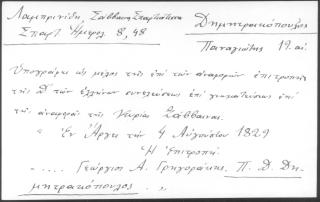 Λαμπρινίδη, Σάββαινα Σπαρτιάτισσα
Δημητρακόπουλος
Σπαρτ. Ημερολ. 8, 48
Παναγιώτης 19. αι.
Υπογράφει ως μέλος της επί των αναφορών επιτροπής
της Δ' των ελλήνων συνελεύσεως επί γνωματεύσεως επί
της αναφοράς της Κυρίας Σάββαινας
" Εν Άργει την 4 Αυγούστου 1829
Η Επιτροπή
..... Γεώργιος Α. Γρηγοράκης, Π. Δ. Δη-
μητρακόπουλος ..,,